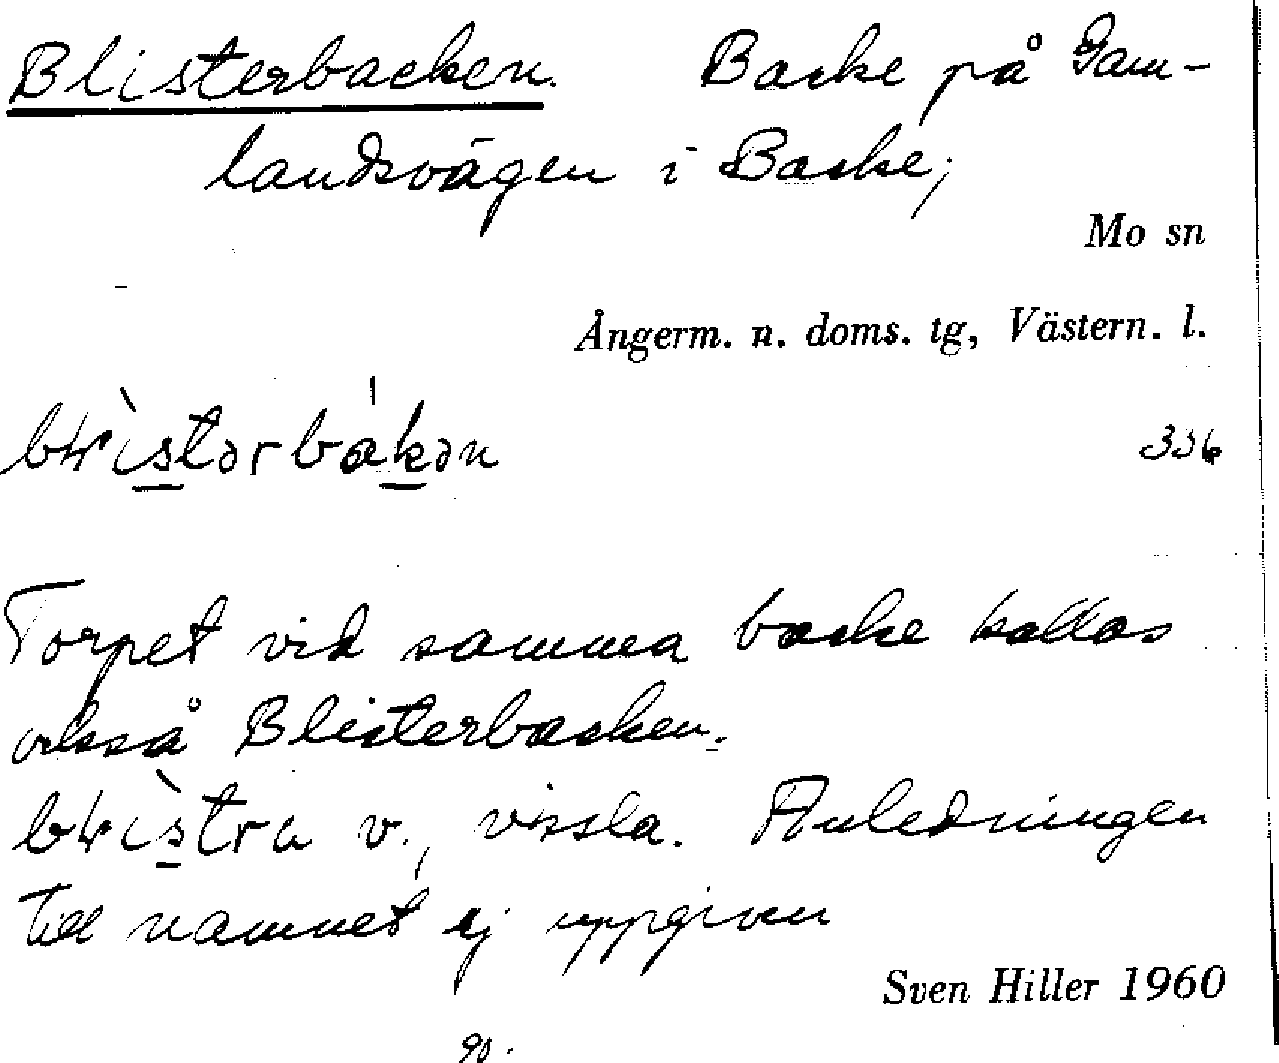 Blisterbacken. Backe på Gam-
landsvägen i Backe;
Mo sn
Ångerm. n. doms. tg, Västern. l.
336
Torpet vid samma backe kallas
också Blisterbacken.
v., vissla. Anledningen
till namnet ej uppgiven
Sven Hiller 1960
90.